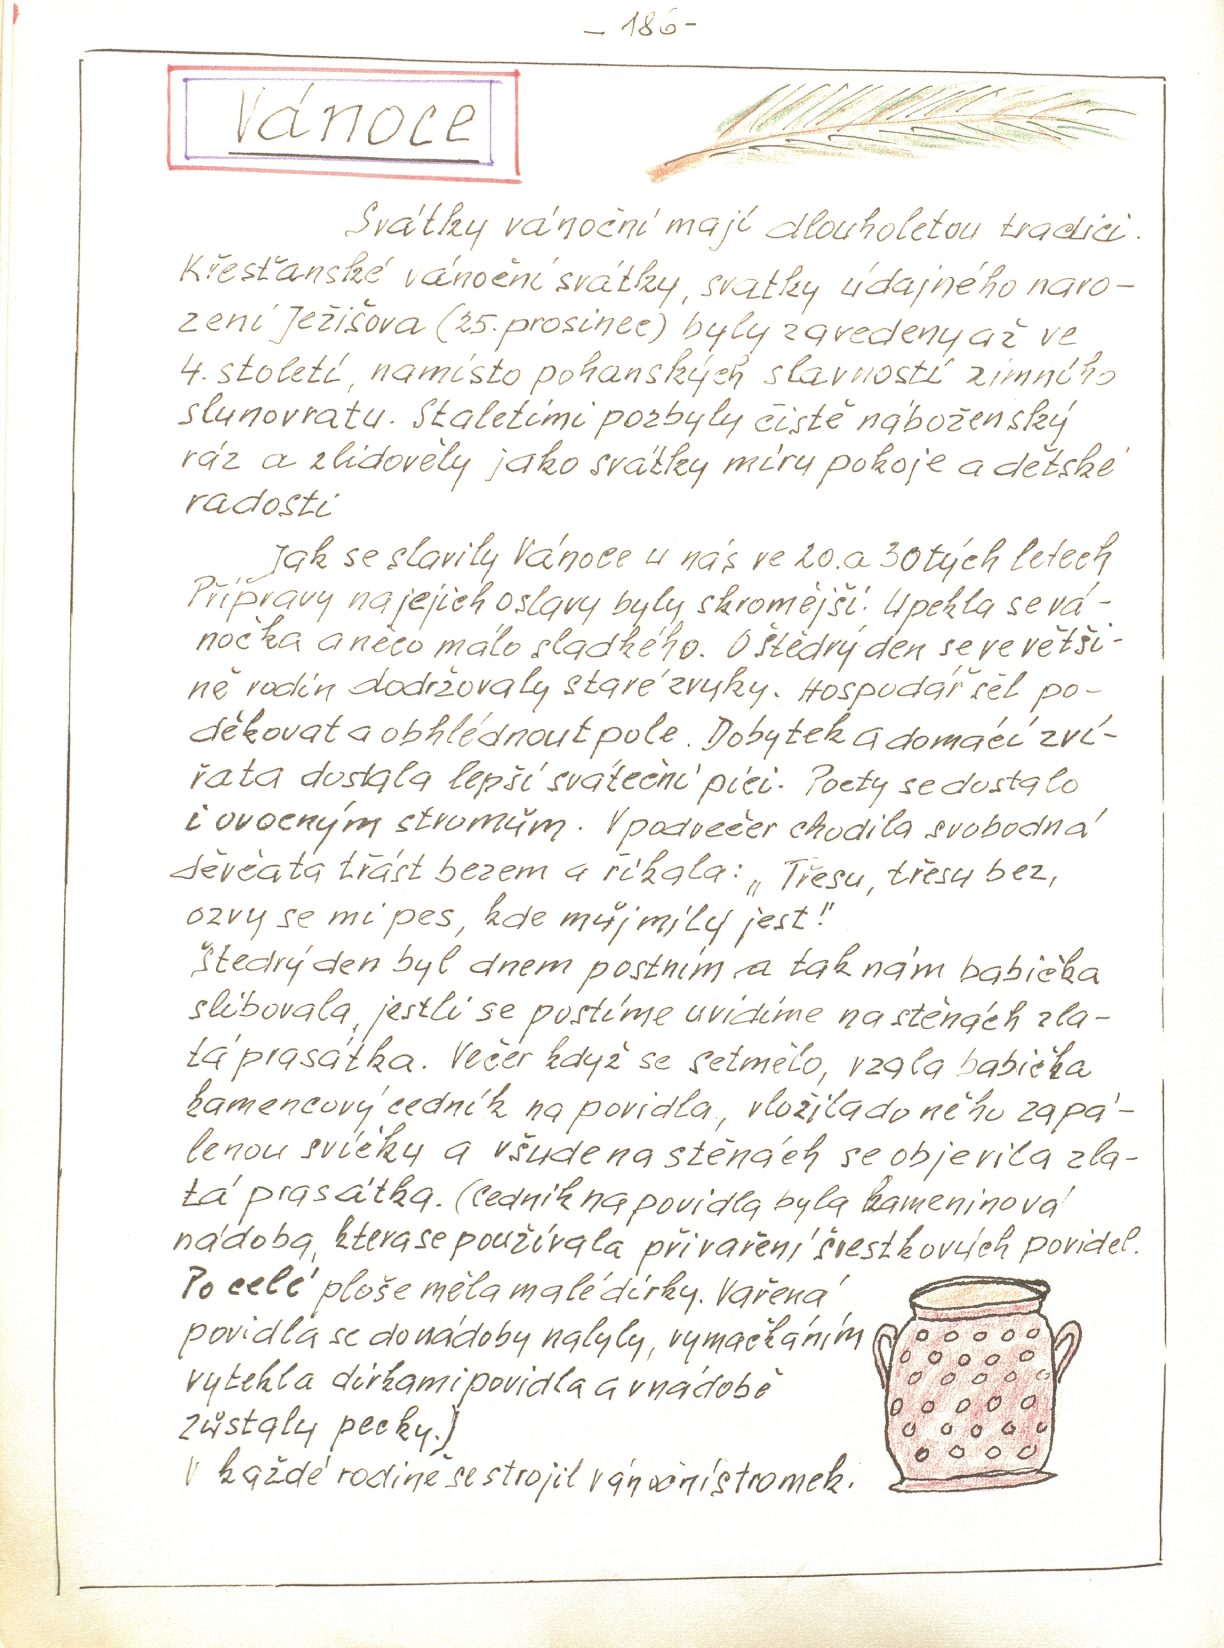 - 186 -
Vánoce
Svátky vánoční mají dlouholetou tradici.
Křesťanské vánoční svátky, svatky údajného naro-
zení Ježišova (25. prosinec) byly zavedeny až ve
4. století, namísto pohanských slavností zimního
slunovratu. Staletími pozbyly čistě náboženský
ráz a zlidověly jako svátky míru pokoje a dětské
radosti
Jak se slavily Vánoce u nás ve 20. a 30tých letech
Přípravy na jejich oslavy byly skromější. Upekla se vá-
nočka a něco málo sladkého. O štědrý den se ve větši-
ně rodin dodržovaly staré zvyky. Hospodář šel po-
děkovat a obhlédnout pole. Dobytek a domácí zví-
řata dostala lepší sváteční píci. Pocty se dostalo
i ovocným stromům. V podvečer chodila svobodná
děvčata třást bezem a říkala: „Třesu, třesu bez,
ozvy se mi pes, kde můj milý jest!"
Štedrý den byl dnem postním a tak nám babička
slibovala, jestli se postíme uvidíme na stěnách zla-
tá prasátka. Večer když se setmělo, vzala babička
kamencový cedník na povidla, vložila do něho zapá-
lenou svíčky a všude na stěnách se objevila zla-
tá prasátka. (Cedník na povidla byla kameninová
nádoba, ktera se používala při vaření švestkových povidel.
Po celé ploše měla malé dírky. Vařená
povidla se do nádoby nalyly, vymačkáním
vytekla dírkami povidla a v nádobě
zůstaly pecky.)
V každé rodině se strojil vánoční stromek.